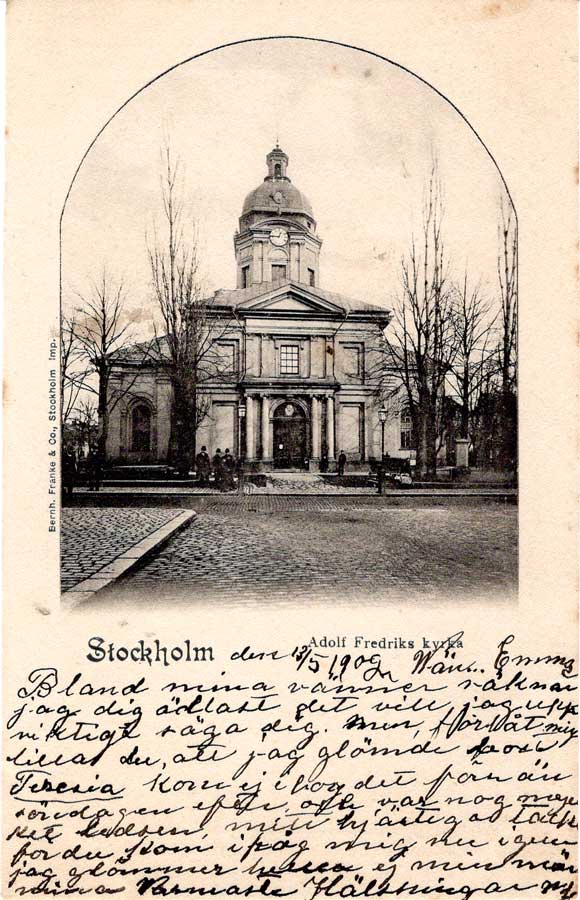 Bernh. Franke & Co., Stockholm Imp.
Adolf Fredriks kyrka
Stockholm den 13/5 1902 Wän. Emma
Bland mina vänner saknar
jag dig ädlast det vill jag upp
riktigt säga dig. men, förlåt mig
lilla du, att jag glömde
Teresia kom ej ihog det förr än
söndagen efter, och var nog myc
ket ledsen, mitt hjärtiga tack
for du kom ihåg mig nu igen
jag glömmer ej min
mina Varmaste Hälsningar